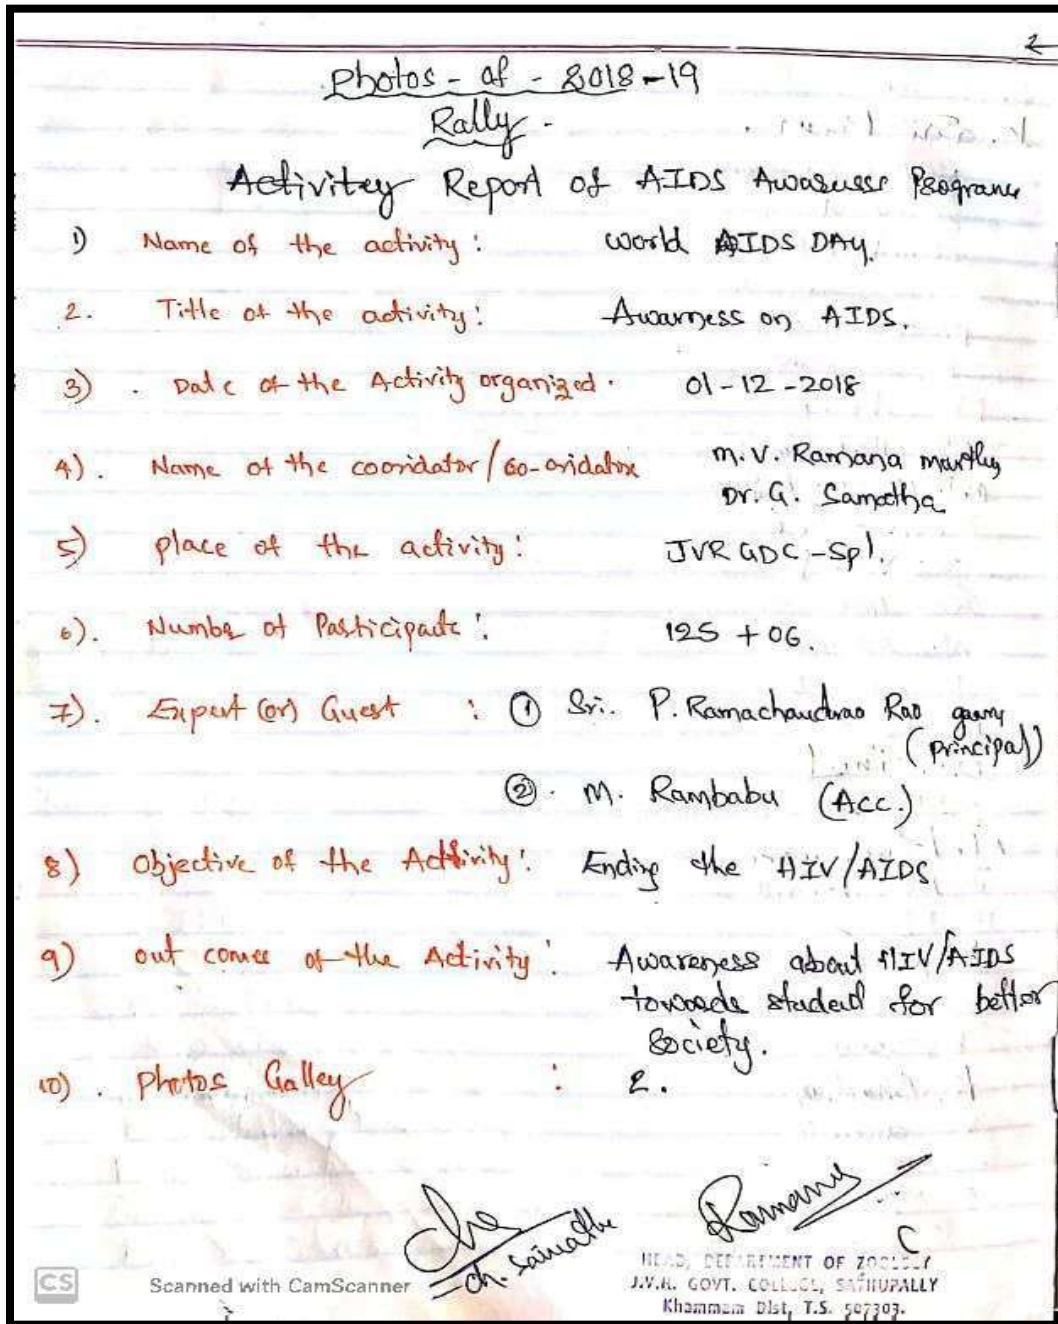 2
Photos - of - 2018-19
Rally -
Activitey Report of AIDS Programe
1) Name of the activity : World AIDS DAY.
2. Title of the activity : Awarness on AIDS.
3) . Date of the Activity organized . 01-12-2018
4) . Name of the cooridator/co-oridator M.V. Ramana
Dr. G. Samatha
5) place of the activity : JVR GDC - Spl.
6). Number of Participate : 125 + 06.
7). Expert (or) Guest : ① Sri. P. Ramachandrao Rao
(principal)
②. M. Rambabu (Acc.)
8) Objective of the Activity : Ending the HIV/AIDS
9) out comes of the Activity : Awareness about HIV/AIDS
towards student for better
Society.
10) . Photos Galley : 2.
Ramana
HEAD, DEPARTMENT OF ZOOLOGY
J.V.R. GOVT. COLLEGE, SATHUPALLY
Khammam Dist, T.S. 507303.
CS Scanned with CamScanner